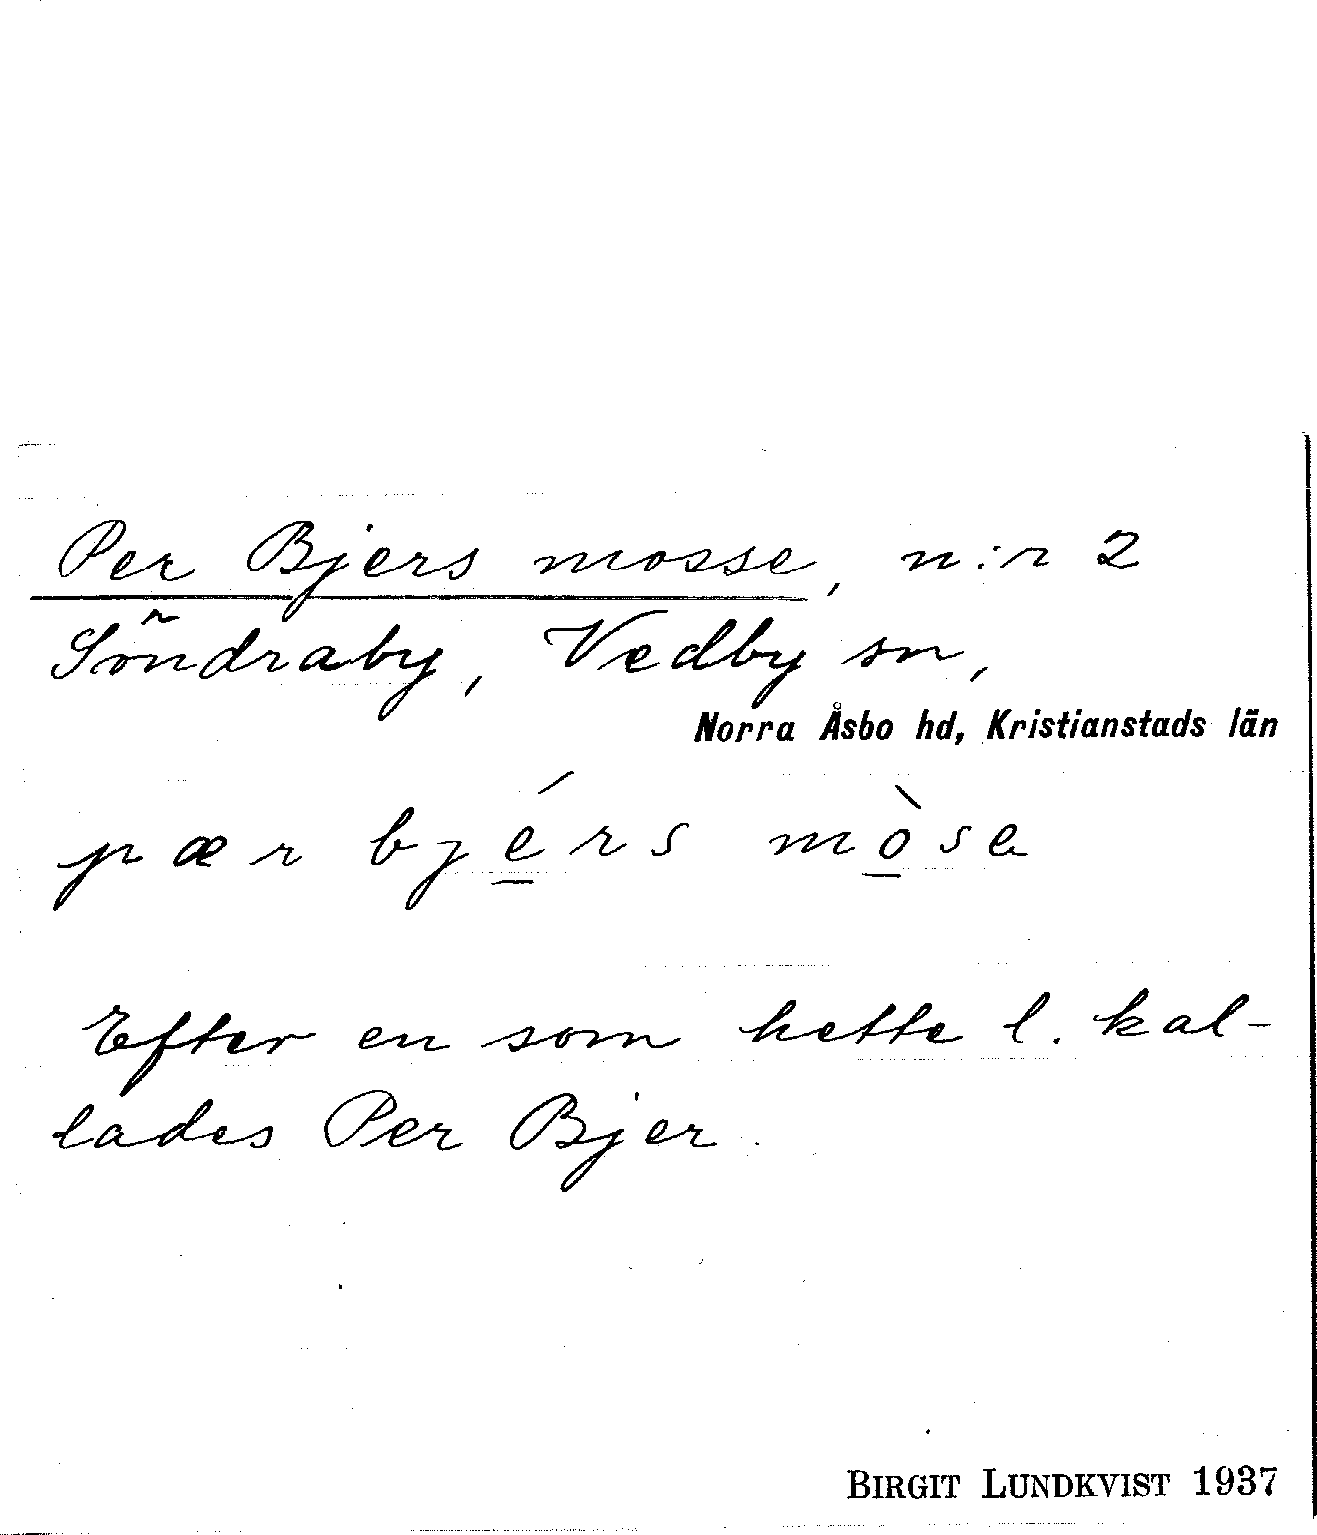 Per Bjers mosse, n:r 2
Söndraby, Vedby sn,
Norra Åsbo hd, Kristianstads län
pær bjérs mòsa
Efter en som hette l. kal-
lades Per Bjer.
BIRGIT LUNDKVIST 1937